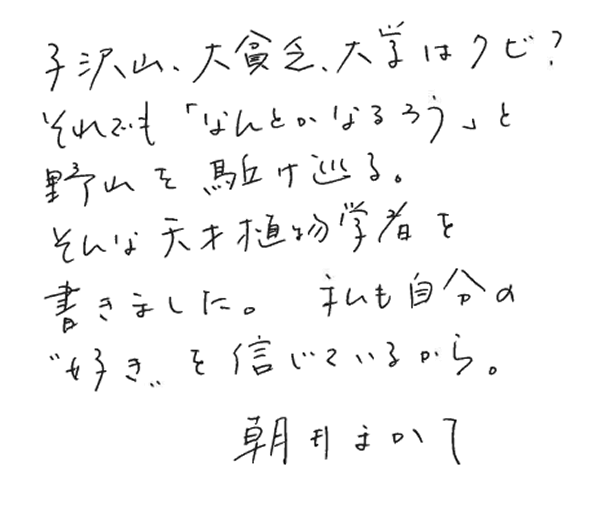 子沢山、大貧乏、大学はクビ?
それでも「なんとかなるろう」と
野山を駈け巡る。
そんな天才植物学者を
書きました。 私も自分の
“好き”を信じているから。
朝井まかて